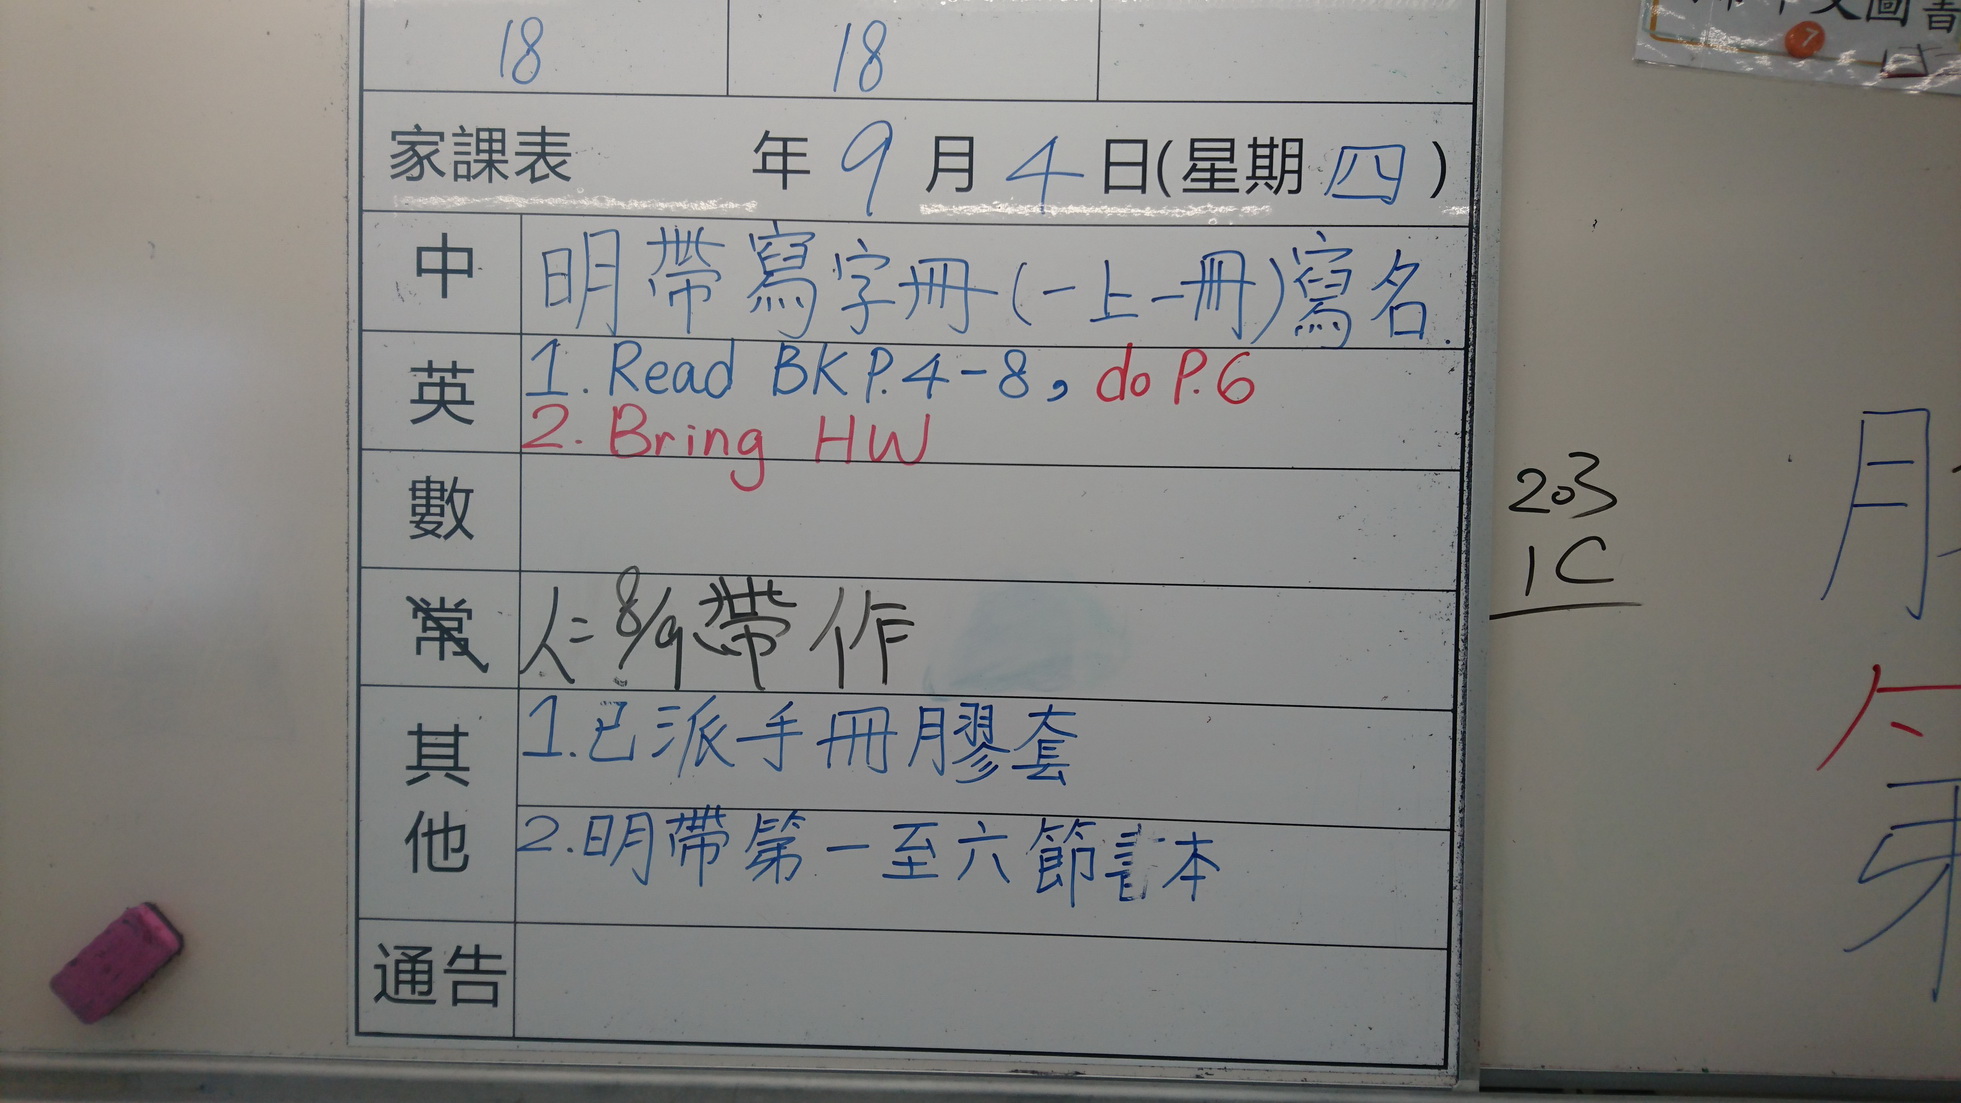 18 18
家課表 年 9 月 4 日(星期 四 )
中 明帶寫字冊(一上一冊)寫名.
英 1. Read BK P.4-8, do P.6
2. Bring HW
數
常 人= 8/9 帶 作
其他 1. 已派手冊膠套
2. 明帶第一至六節書本
通告
203
1C
7